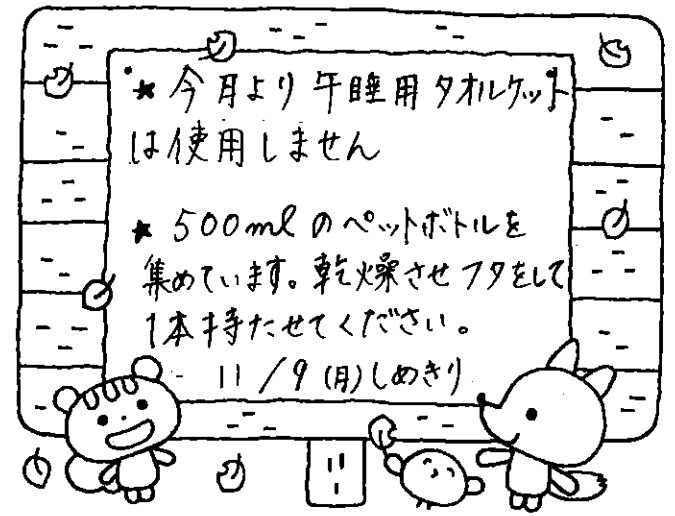 ★ 今月より 午睡用 タオルケット
は使用しません
★ 500mlのペットボトルを
集めています。乾燥させフタをして
1本持たせてください。
11/9(月)しめきり